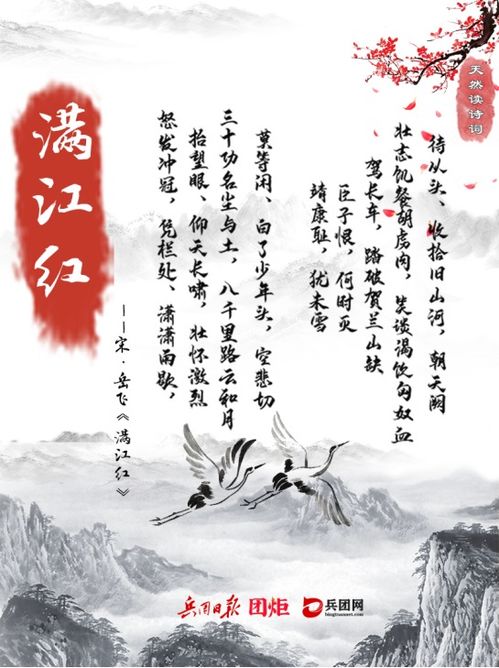 天然读诗词
满江红
——宋·岳飞《满江红》
怒发冲冠，凭栏处、潇潇雨歇，
抬望眼、仰天长啸，壮怀激烈
三十功名尘与土，八千里路云和月
莫等闲、白了少年头，空悲切
靖康耻，犹未雪
臣子恨，何时灭
驾长车，踏破贺兰山缺
壮志饥餐胡虏肉，笑谈渴饮匈奴血
待从头、收拾旧山河，朝天阙
兵团日报 团炬 兵团网
bingtuannet.com